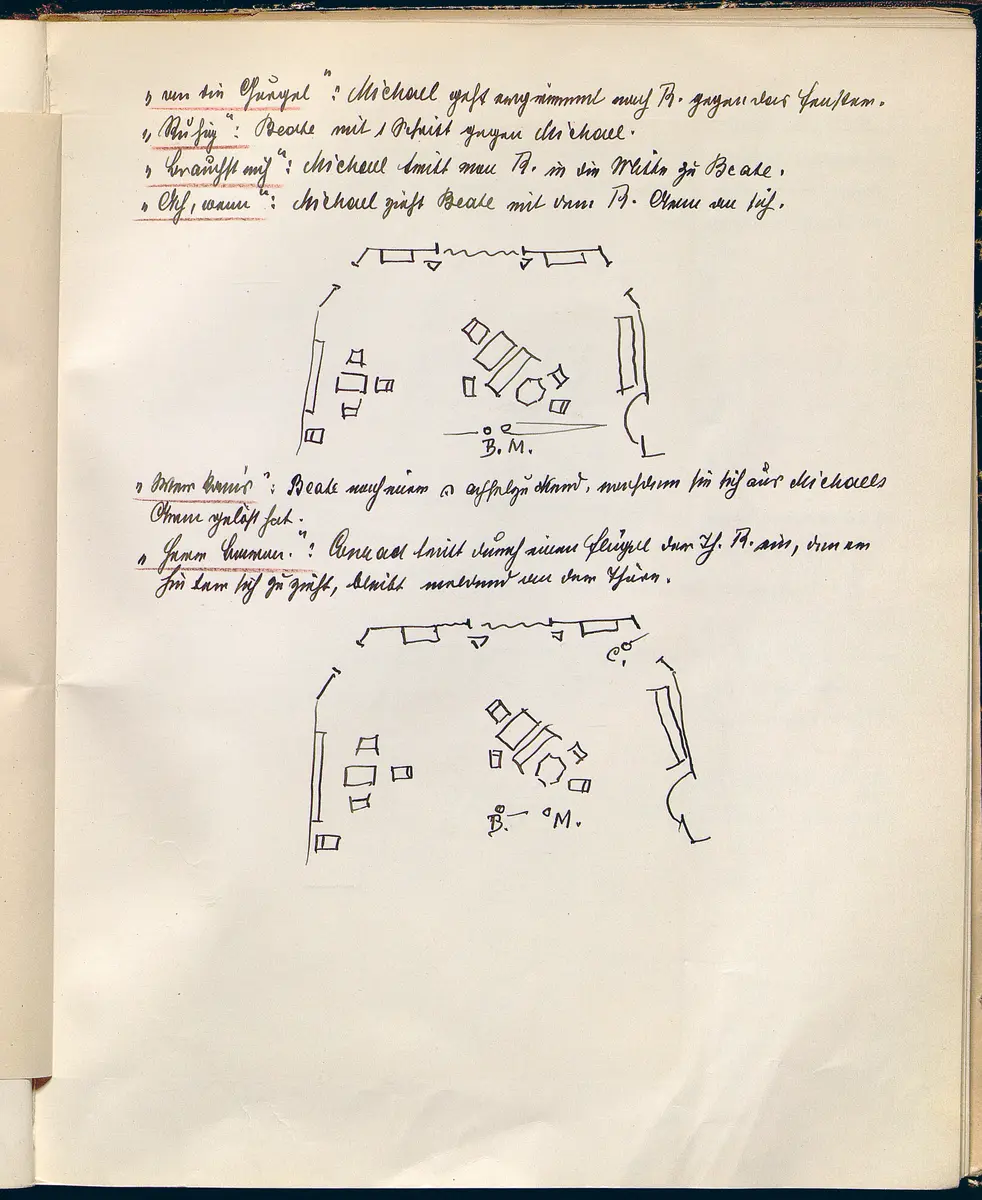 „an die Gurgel": Michael geht ergrimmt nach R. gegen das Fenster.
„Ruhig": Beate mit 1 Schritt gegen Michael.
„brauchst mich": Michael tritt von R. in die Mitte zu Beate.
„Ach, wenn": Michael zieht Beate mit dem R. Arm an sich.
B. M.
„Wer kann's": Beate nach einer achselzuckend, nachdem sie sich aus Michaels
Arm gelöst hat.
„Herr Baron.": Conrad tritt durch einen Flügel der Th. R. ein, den er
hinter sich zuzieht, bleibt meldend an der Thüre.
C.
B. M.